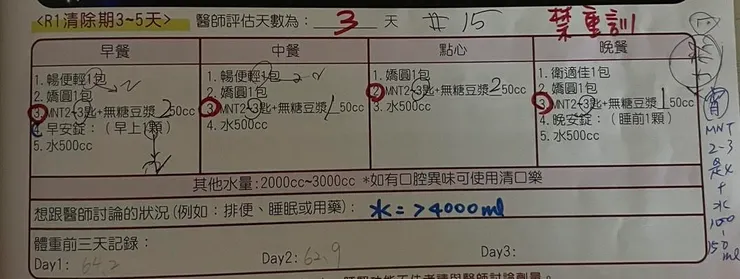 <R1清除期3~5天> 醫師評估天數為: 3 天 #15 禁重訓
早餐 中餐 點心 晚餐
1. 暢便輕1包
2. 嬌圓1包
3. MNT2~3匙+無糖豆漿 250cc
4. 早安錠:(早上1顆)
5. 水500cc
1. 暢便輕1包
2. 嬌圓1包
3. MNT2~3匙+無糖豆漿 150cc
4. 水500cc
1. 嬌圓1包
2. MNT2~3匙+無糖豆漿 250cc
3. 水500cc
1. 衛適佳1包
2. 嬌圓1包
3. MNT2~3匙+無糖豆漿 150cc
4. 晚安錠:(睡前1顆)
5. 水500cc
其他水量:2000cc~3000cc *如有口腔異味可使用清口樂
想跟醫師討論的狀況(例如:排便、睡眠或用藥): 水=>4000ml
體重前三天記錄:
Day1: 64.2 Day2: 62.9 Day3:
宵
MNT
2-3
匙
+
水
100
-
150
ml